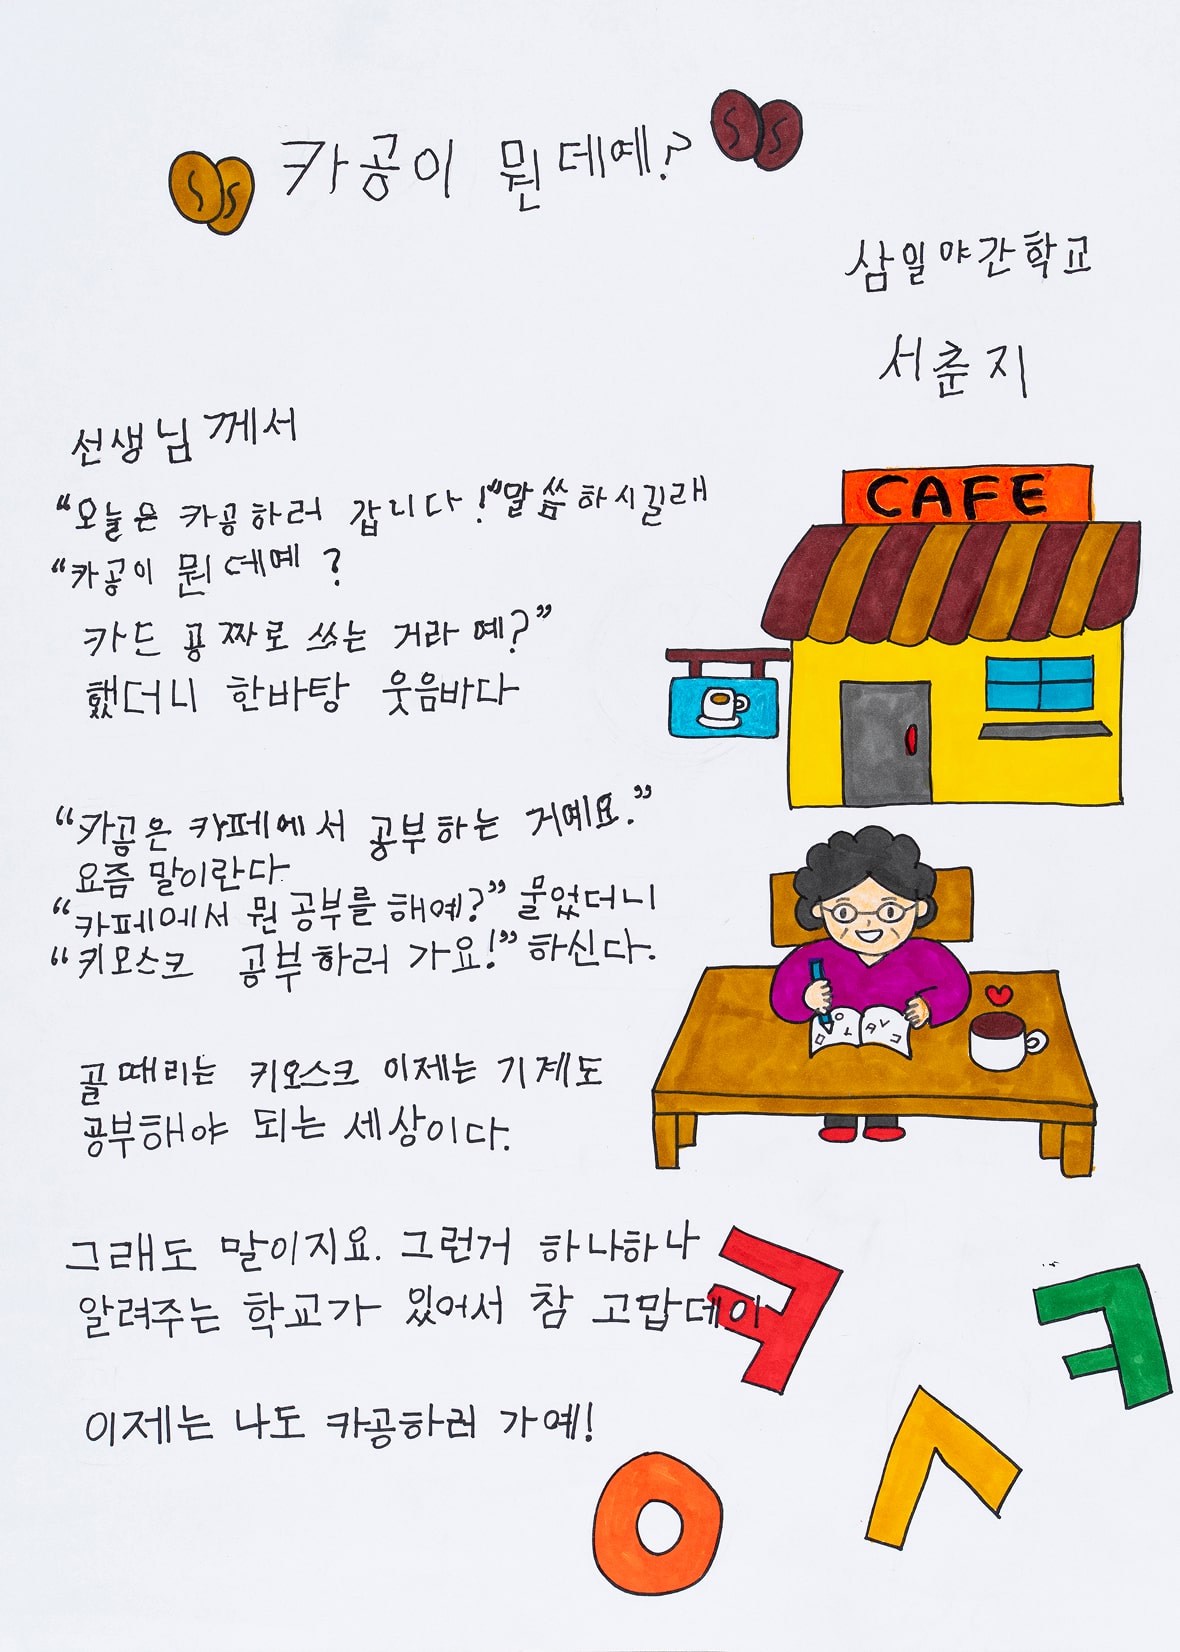 카공이 뭔데예?
삼일야간학교
서춘지
선생님께서
"오늘은 카공하러 갑니다!"말씀하시길래
"카공이 뭔데예?
카드 공짜로 쓰는 거라예?"
했더니 한바탕 웃음바다
"카공은 카페에서 공부하는 거예요."
요즘 말이란다
"카페에서 뭔 공부를 해예?" 물었더니
"키오스크 공부하러 가요!" 하신다.
골때리는 키오스크 이제는 기계도
공부해야 되는 세상이다.
그래도 말이지요. 그런거 하나하나
알려주는 학교가 있어서 참 고맙데이
이제는 나도 카공하러 가예!
CAFE
ㅋ
ㅋ
ㅅ
ㅇ